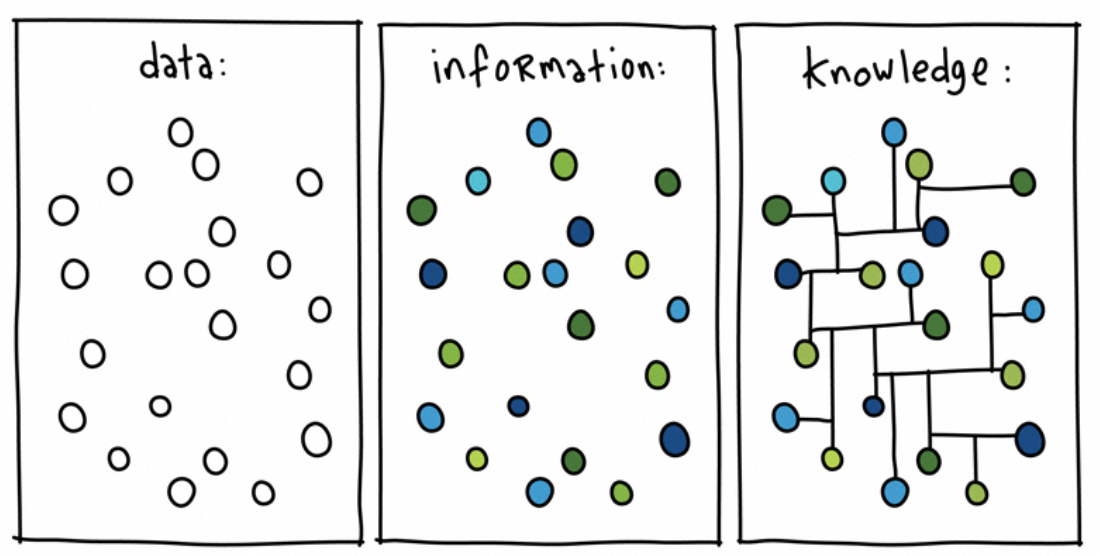 data:
information:
knowledge: